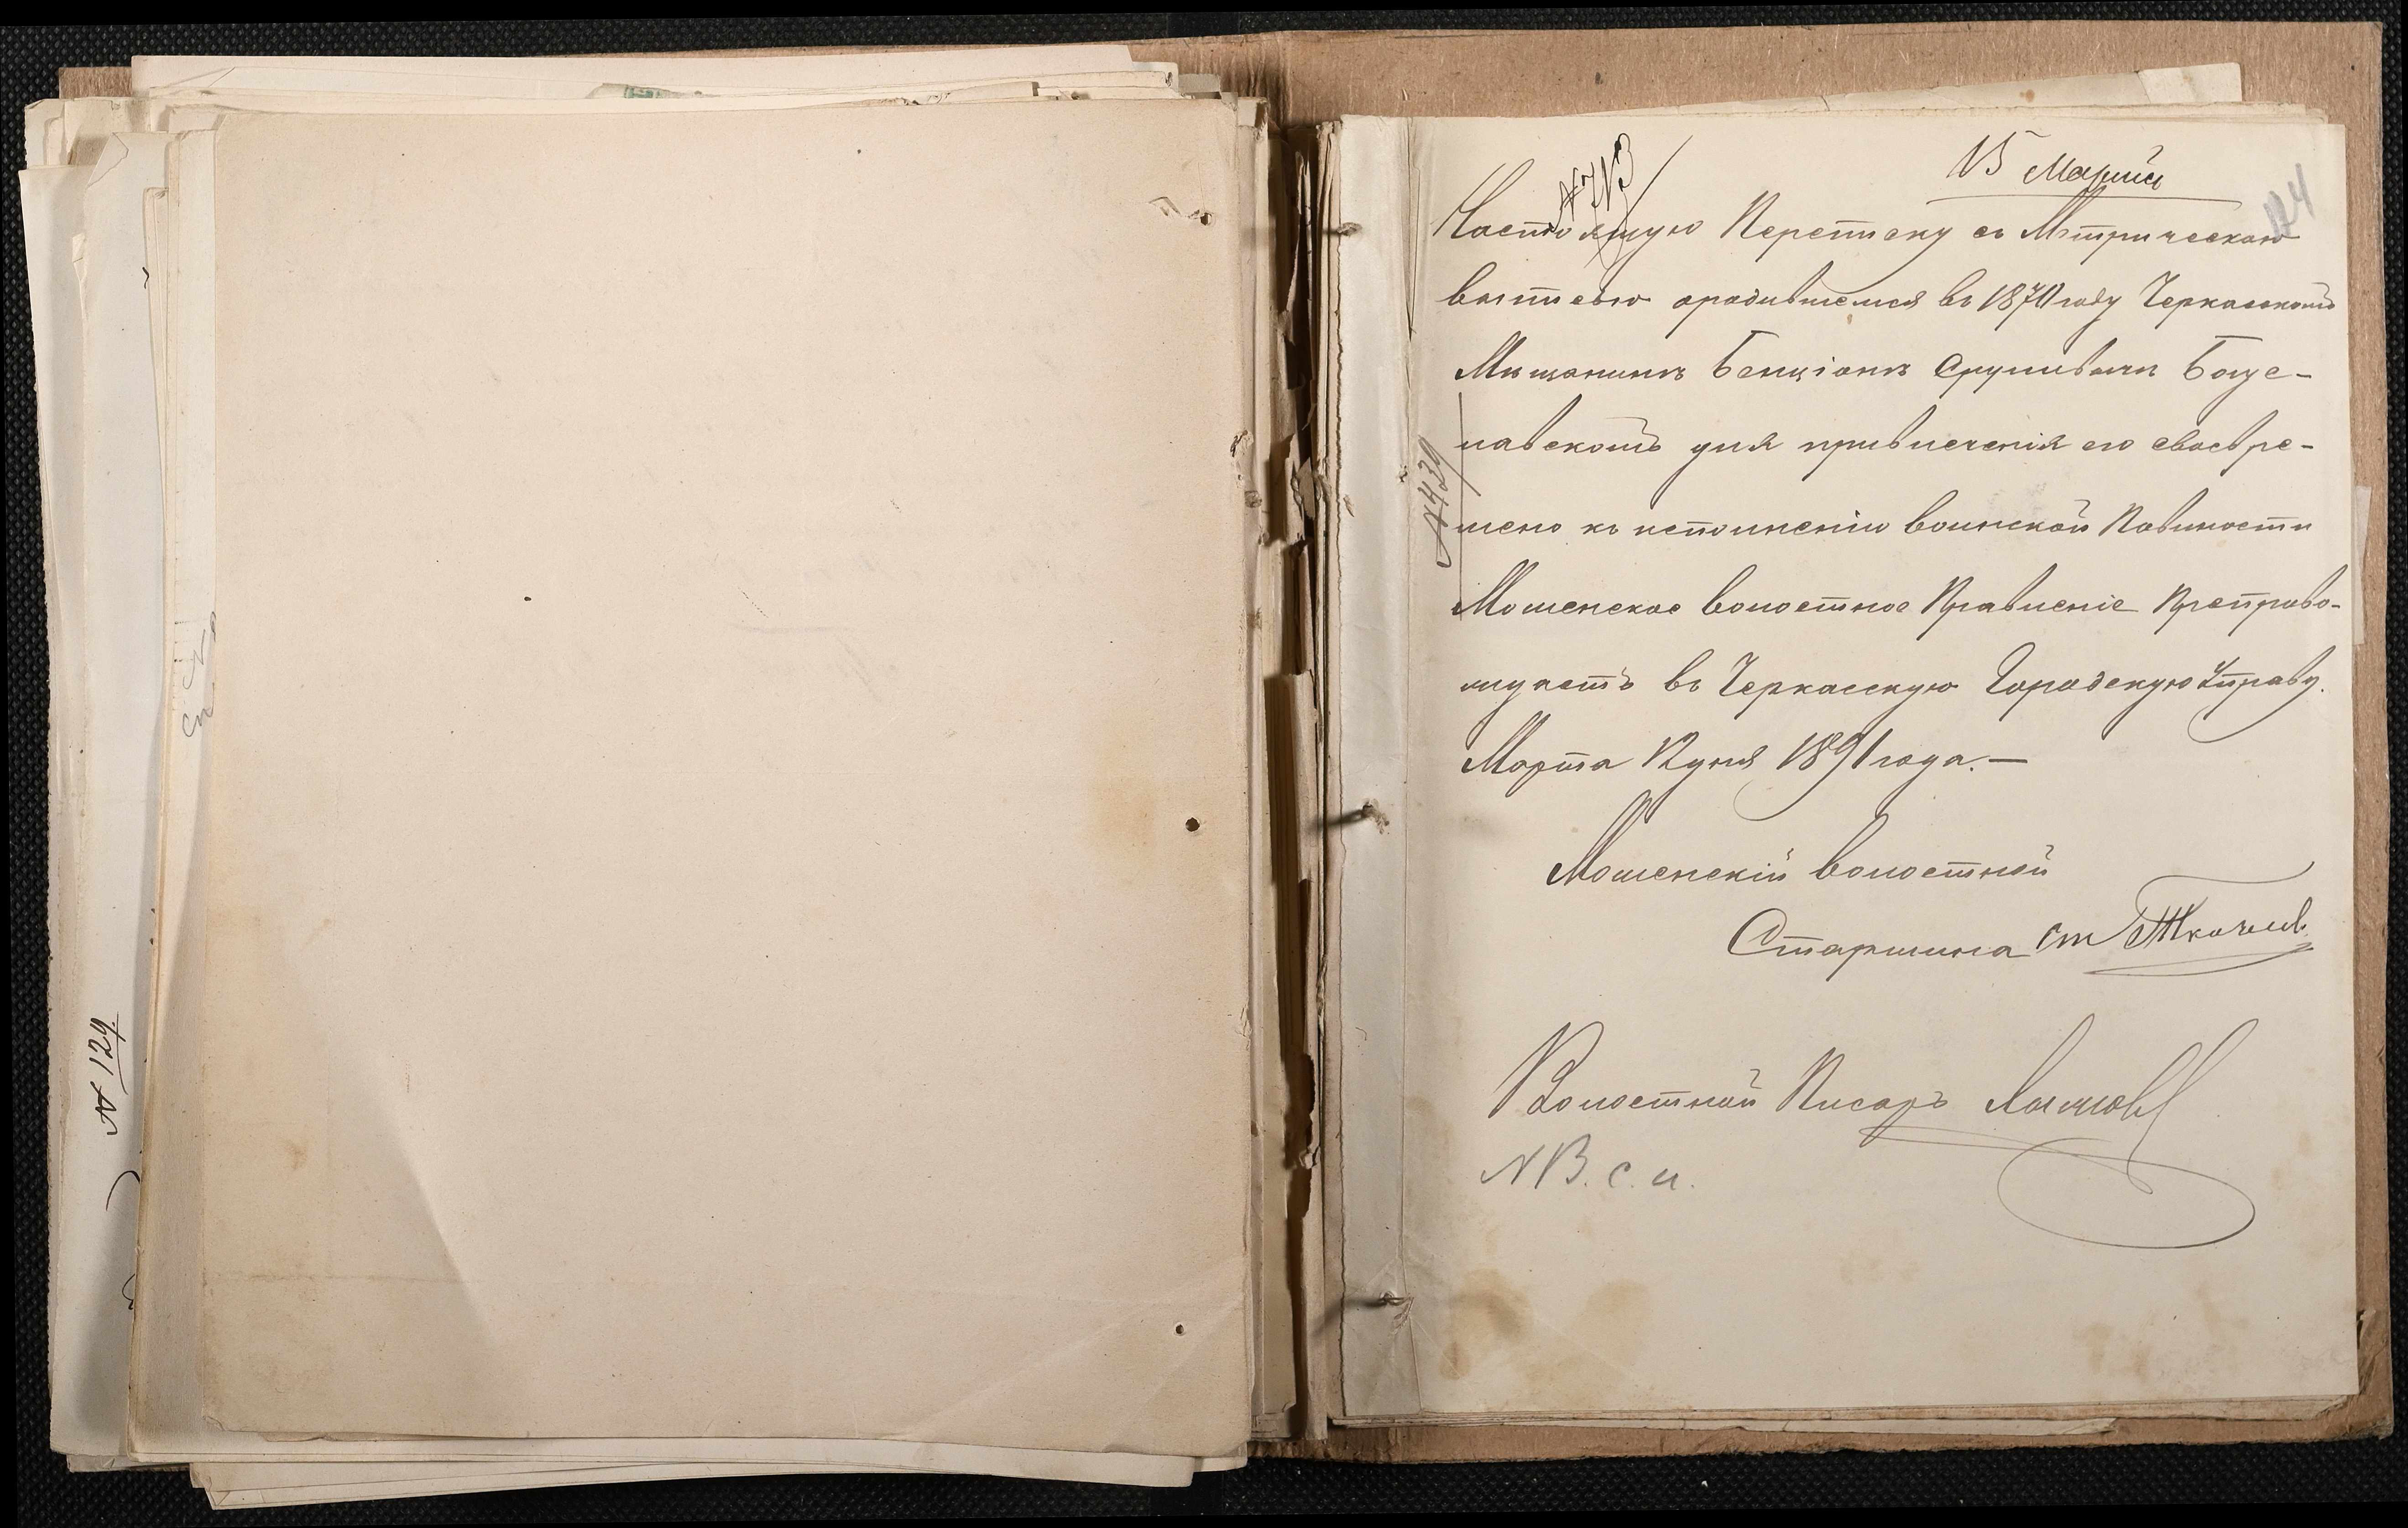 № 129
15 Марта
№ 713
124
Настоящую Переписку съ Метрическою
вытьсью ородившемся въ 1870 году Черкасскомъ
Мищанинъ Бенціонъ Сруливичъ Богус-
лавскомъ для привлеченія его своевре-
мено къ исполненію воинской Повиности
№ 439
Мошенское волостное Правленіе Препрово-
ждаетъ въ Черкасскую Городскую Управу.
Марта 12 дня 1891 года.—
Мошенскій волостной
Старшина Ткачев
Волостной Писарь
NB. с. и.